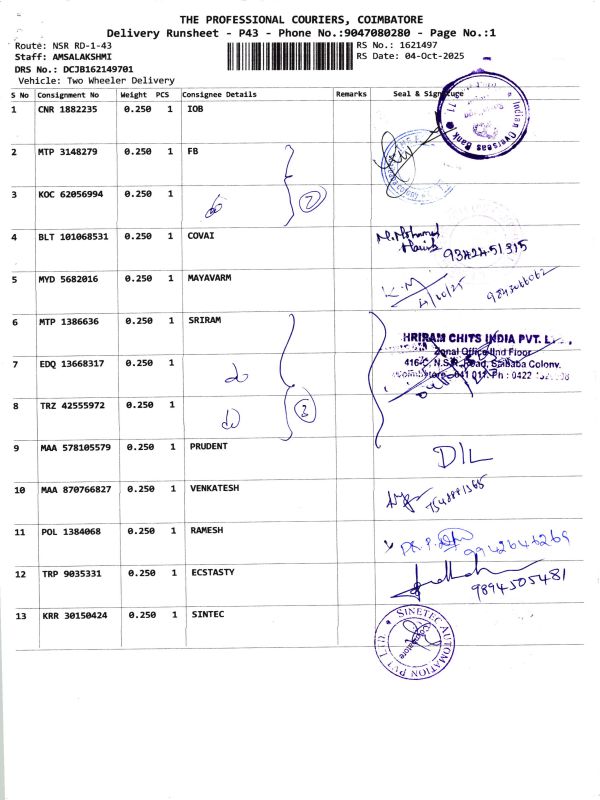 THE PROFESSIONAL COURIERS, COIMBATORE
Delivery Runsheet - P43 - Phone No.:9047080280 - Page No.:1
Route: NSR RD-1-43
RS No.: 1621497
Staff: AMSALAKSHMI
RS Date: 04-Oct-2025
DRS No.: DCJB162149701
Vehicle: Two Wheeler Delivery
S No Consignment No Weight PCS Consignee Details Remarks Seal & Signature
1 CNR 1882235 0.250 1 IOB
Indian Overseas Bank
2 MTP 3148279 0.250 1 FB
3 KOC 62056994 0.250 1
4 BLT 101068531 0.250 1 COVAI
M. Mohamed
Harish 9342451315
5 MYD 5682016 0.250 1 MAYAVARM
K.M
4/10/25
6 MTP 1386636 0.250 1 SRIRAM
HRIRAM CHITS INDIA PVT.
Zonal Office IInd Floor
7 EDQ 13668317 0.250 1 do
416-C, N.S.R. Road, Saibaba Colony.
Ph : 0422
8 TRZ 42555972 0.250 1 do
3
9 MAA 578105579 0.250 1 PRUDENT
D/L
10 MAA 870766827 0.250 1 VENKATESH
11 POL 1384068 0.250 1 RAMESH
9942646269
12 TRP 9035331 0.250 1 ECSTASTY
9894505481
13 KRR 30150424 0.250 1 SINTEC
SINETEC AUTOMATION PVT LTD
Coimbatore